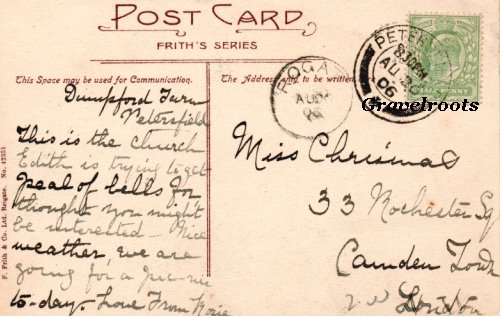 POST CARD
FRITH'S SERIES
This Space may be used for Communication.
The Address only to be written
ROGA
AU
06
PETER
8.30PM
AU
06
HALF PENNY
Gravelroots
Dumpford Farm
Petersfield
This is the church
Edith is trying to get
peal of bells for
thought you might
be interested - Nice
weather, we are
going for a pic-nic
to-day. Love From Rosie
Miss Chrismas
33 Rochester Sq
Camden Town
N W London
F. Frith & Co. Ltd. Reigate. No. 42351